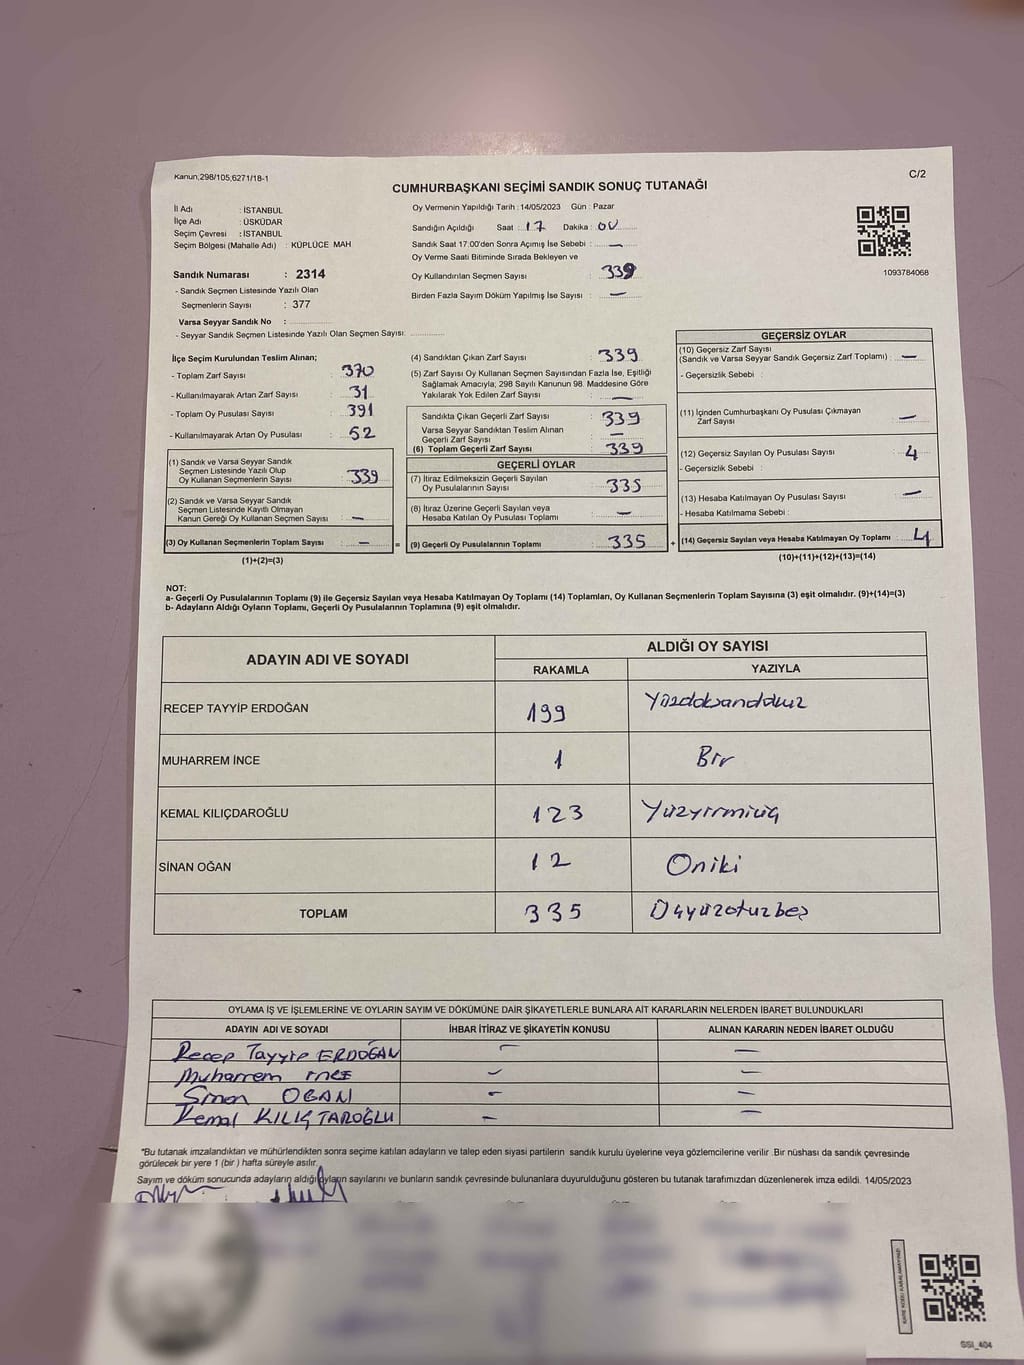 Kanun,298/105,6271/18-1
C/2
CUMHURBAŞKANI SEÇİMİ SANDIK SONUÇ TUTANAĞI
İl Adı : İSTANBUL
İlçe Adı : ÜSKÜDAR
Seçim Çevresi : İSTANBUL
Seçim Bölgesi (Mahalle Adı) : KÜPLÜCE MAH
Oy Vermenin Yapıldığı Tarih :14/05/2023 Gün : Pazar
Sandığın Açıldığı Saat : 17 Dakika : 00
Sandık Saat 17:00'den Sonra Açımış İse Sebebi : —
Oy Verme Saati Bitiminde Sırada Bekleyen ve
Oy Kullandırılan Seçmen Sayısı : 339
Birden Fazla Sayım Döküm Yapılmış İse Sayısı : —
1093784068
Sandık Numarası : 2314
- Sandık Seçmen Listesinde Yazılı Olan
Seçmenlerin Sayısı : 377
Varsa Seyyar Sandık No :
- Seyyar Sandık Seçmen Listesinde Yazılı Olan Seçmen Sayısı:
İlçe Seçim Kurulundan Teslim Alınan;
- Toplam Zarf Sayısı : 370
- Kullanılmayarak Artan Zarf Sayısı : 31
- Toplam Oy Pusulası Sayısı : 391
- Kullanılmayarak Artan Oy Pusulası : 52
(1) Sandık ve Varsa Seyyar Sandık
Seçmen Listesinde Yazılı Olup
Oy Kullanan Seçmenlerin Sayısı : 339
(2) Sandık ve Varsa Seyyar Sandık
Seçmen Listesinde Kayıtlı Olmayan
Kanun Gereği Oy Kullanan Seçmen Sayısı : —
(3) Oy Kullanan Seçmenlerin Toplam Sayısı : —
(1)+(2)=(3)
(4) Sandıktan Çıkan Zarf Sayısı : 339
(5) Zarf Sayısı Oy Kullanan Seçmen Sayısından Fazla İse, Eşitliği
Sağlamak Amacıyla; 298 Sayılı Kanunun 98. Maddesine Göre
Yakılarak Yok Edilen Zarf Sayısı : —
Sandıkta Çıkan Geçerli Zarf Sayısı : 339
Varsa Seyyar Sandıktan Teslim Alınan
Geçerli Zarf Sayısı : —
(6) Toplam Geçerli Zarf Sayısı : 339
GEÇERLİ OYLAR
(7) İtiraz Edilmeksizin Geçerli Sayılan
Oy Pusulalarının Sayısı : 335
(8) İtiraz Üzerine Geçerli Sayılan veya
Hesaba Katılan Oy Pusulası Toplamı : —
= (9) Geçerli Oy Pusulalarının Toplamı : 335
GEÇERSİZ OYLAR
(10) Geçersiz Zarf Sayısı
(Sandık ve Varsa Seyyar Sandık Geçersiz Zarf Toplamı) : —
- Geçersizlik Sebebi :
(11) İçinden Cumhurbaşkanı Oy Pusulası Çıkmayan
Zarf Sayısı : —
(12) Geçersiz Sayılan Oy Pusulası Sayısı : 4
- Geçersizlik Sebebi :
(13) Hesaba Katılmayan Oy Pusulası Sayısı : —
- Hesaba Katılmama Sebebi :
+ (14) Geçersiz Sayılan veya Hesaba Katılmayan Oy Toplamı : 4
(10)+(11)+(12)+(13)=(14)
NOT:
a- Geçerli Oy Pusulalarının Toplamı (9) ile Geçersiz Sayılan veya Hesaba Katılmayan Oy Toplamı (14) Toplamları, Oy Kullanan Seçmenlerin Toplam Sayısına (3) eşit olmalıdır. (9)+(14)=(3)
b- Adayların Aldığı Oyların Toplamı, Geçerli Oy Pusulalarının Toplamına (9) eşit olmalıdır.
ADAYIN ADI VE SOYADI
ALDIĞI OY SAYISI
RAKAMLA YAZIYLA
RECEP TAYYİP ERDOĞAN 199 Yüzdoksandokuz
MUHARREM İNCE 1 Bir
KEMAL KILIÇDAROĞLU 123 Yüzyirmiüç
SİNAN OĞAN 12 Oniki
TOPLAM 335 Üçyüzotuzbeş
OYLAMA İŞ VE İŞLEMLERİNE VE OYLARIN SAYIM VE DÖKÜMÜNE DAİR ŞİKAYETLERLE BUNLARA AİT KARARLARIN NELERDEN İBARET BULUNDUKLARI
ADAYIN ADI VE SOYADI İHBAR İTİRAZ VE ŞİKAYETİN KONUSU ALINAN KARARIN NEDEN İBARET OLDUĞU
Recep Tayyip ERDOĞAN — —
Muharrem İNCE — —
Sinan OGAN — —
Kemal KILIÇTAROĞLU — —
"Bu tutanak imzalandıktan ve mühürlendikten sonra seçime katılan adayların ve talep eden siyasi partilerin sandık kurulu üyelerine veya gözlemcilerine verilir .Bir nüshası da sandık çevresinde
görülecek bir yere 1 (bir ) hafta süreyle asılır.
Sayım ve döküm sonucunda adayların aldığı oyların sayılarını ve bunların sandık çevresinde bulunanlara duyurulduğunu gösteren bu tutanak tarafımızdan düzenlenerek imza edildi. 14/05/2023
KARE KODU KARALAMAYINIZ!